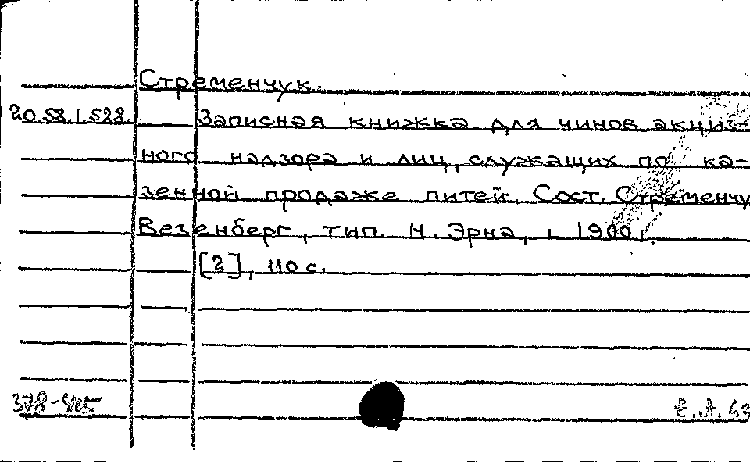 Стременчук.
20.58.1.528. Записная книжка для чинов акциз-
ного надзора и лиц, служащих по ка-
зенной продаже питей. Сост. Стременчу
Везенберг, тип. Н. Эрна, 1900.
[2], 110 с.